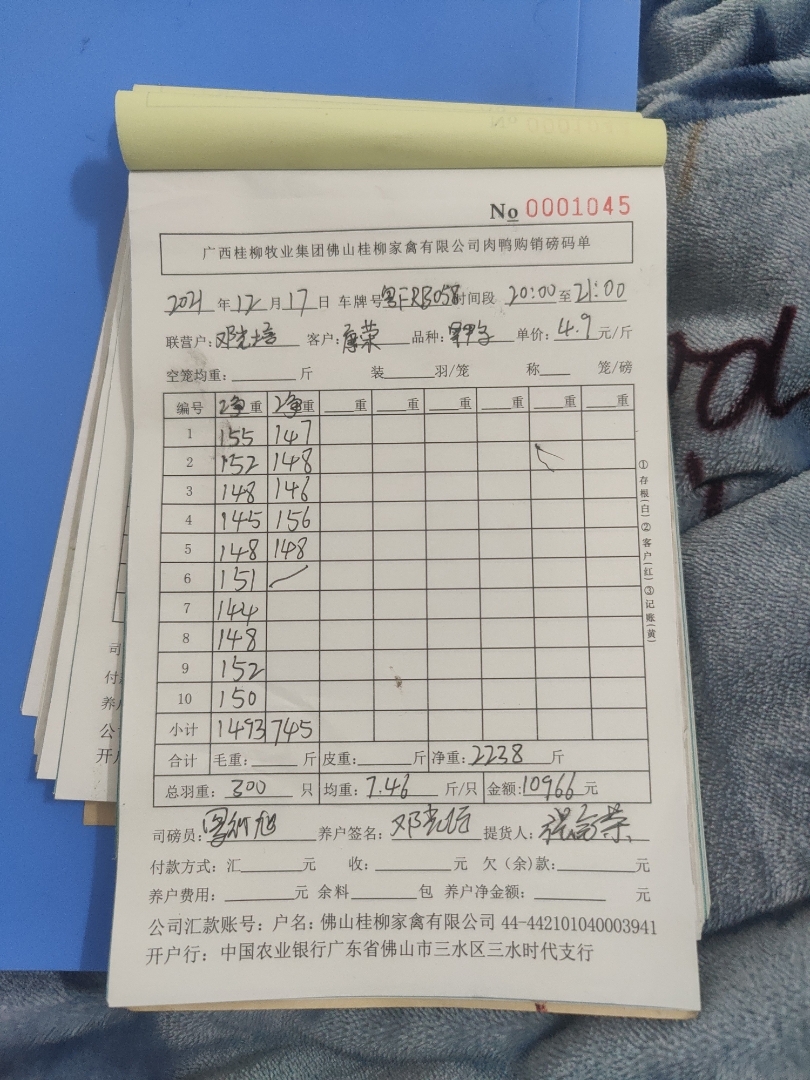 No 0001045
广西桂柳牧业集团佛山桂柳家禽有限公司肉鸭购销磅码单
2021 年 12 月 17 日 车牌号 粤FRB058 时间段 20:00 至 21:00
联营户: 邓光培 客户: 荣 品种: 单价: 4.9 元/斤
空笼均重: 斤 装 羽/笼 称 笼/磅
编号 净重 净重 重 重 重 重 重 重
1 155 147
2 152 148
3 148 146
4 145 156
5 148 148
6 151
7 144
8 148
9 152
10 150
小计 1493 745
合计 毛重: 斤 皮重: 斤 净重: 2238 斤
总羽重: 300 只 均重: 7.46 斤/只 金额: 10966 元
司磅员: 养户签名: 邓光培 提货人:
付款方式: 汇 元 收: 元 欠(余)款: 元
养户费用: 元 余料 包 养户净金额: 元
公司汇款账号: 户名: 佛山桂柳家禽有限公司 44-442101040003941
开户行: 中国农业银行广东省佛山市三水区三水时代支行
①存根(白)②客户(红)③记账(黄)